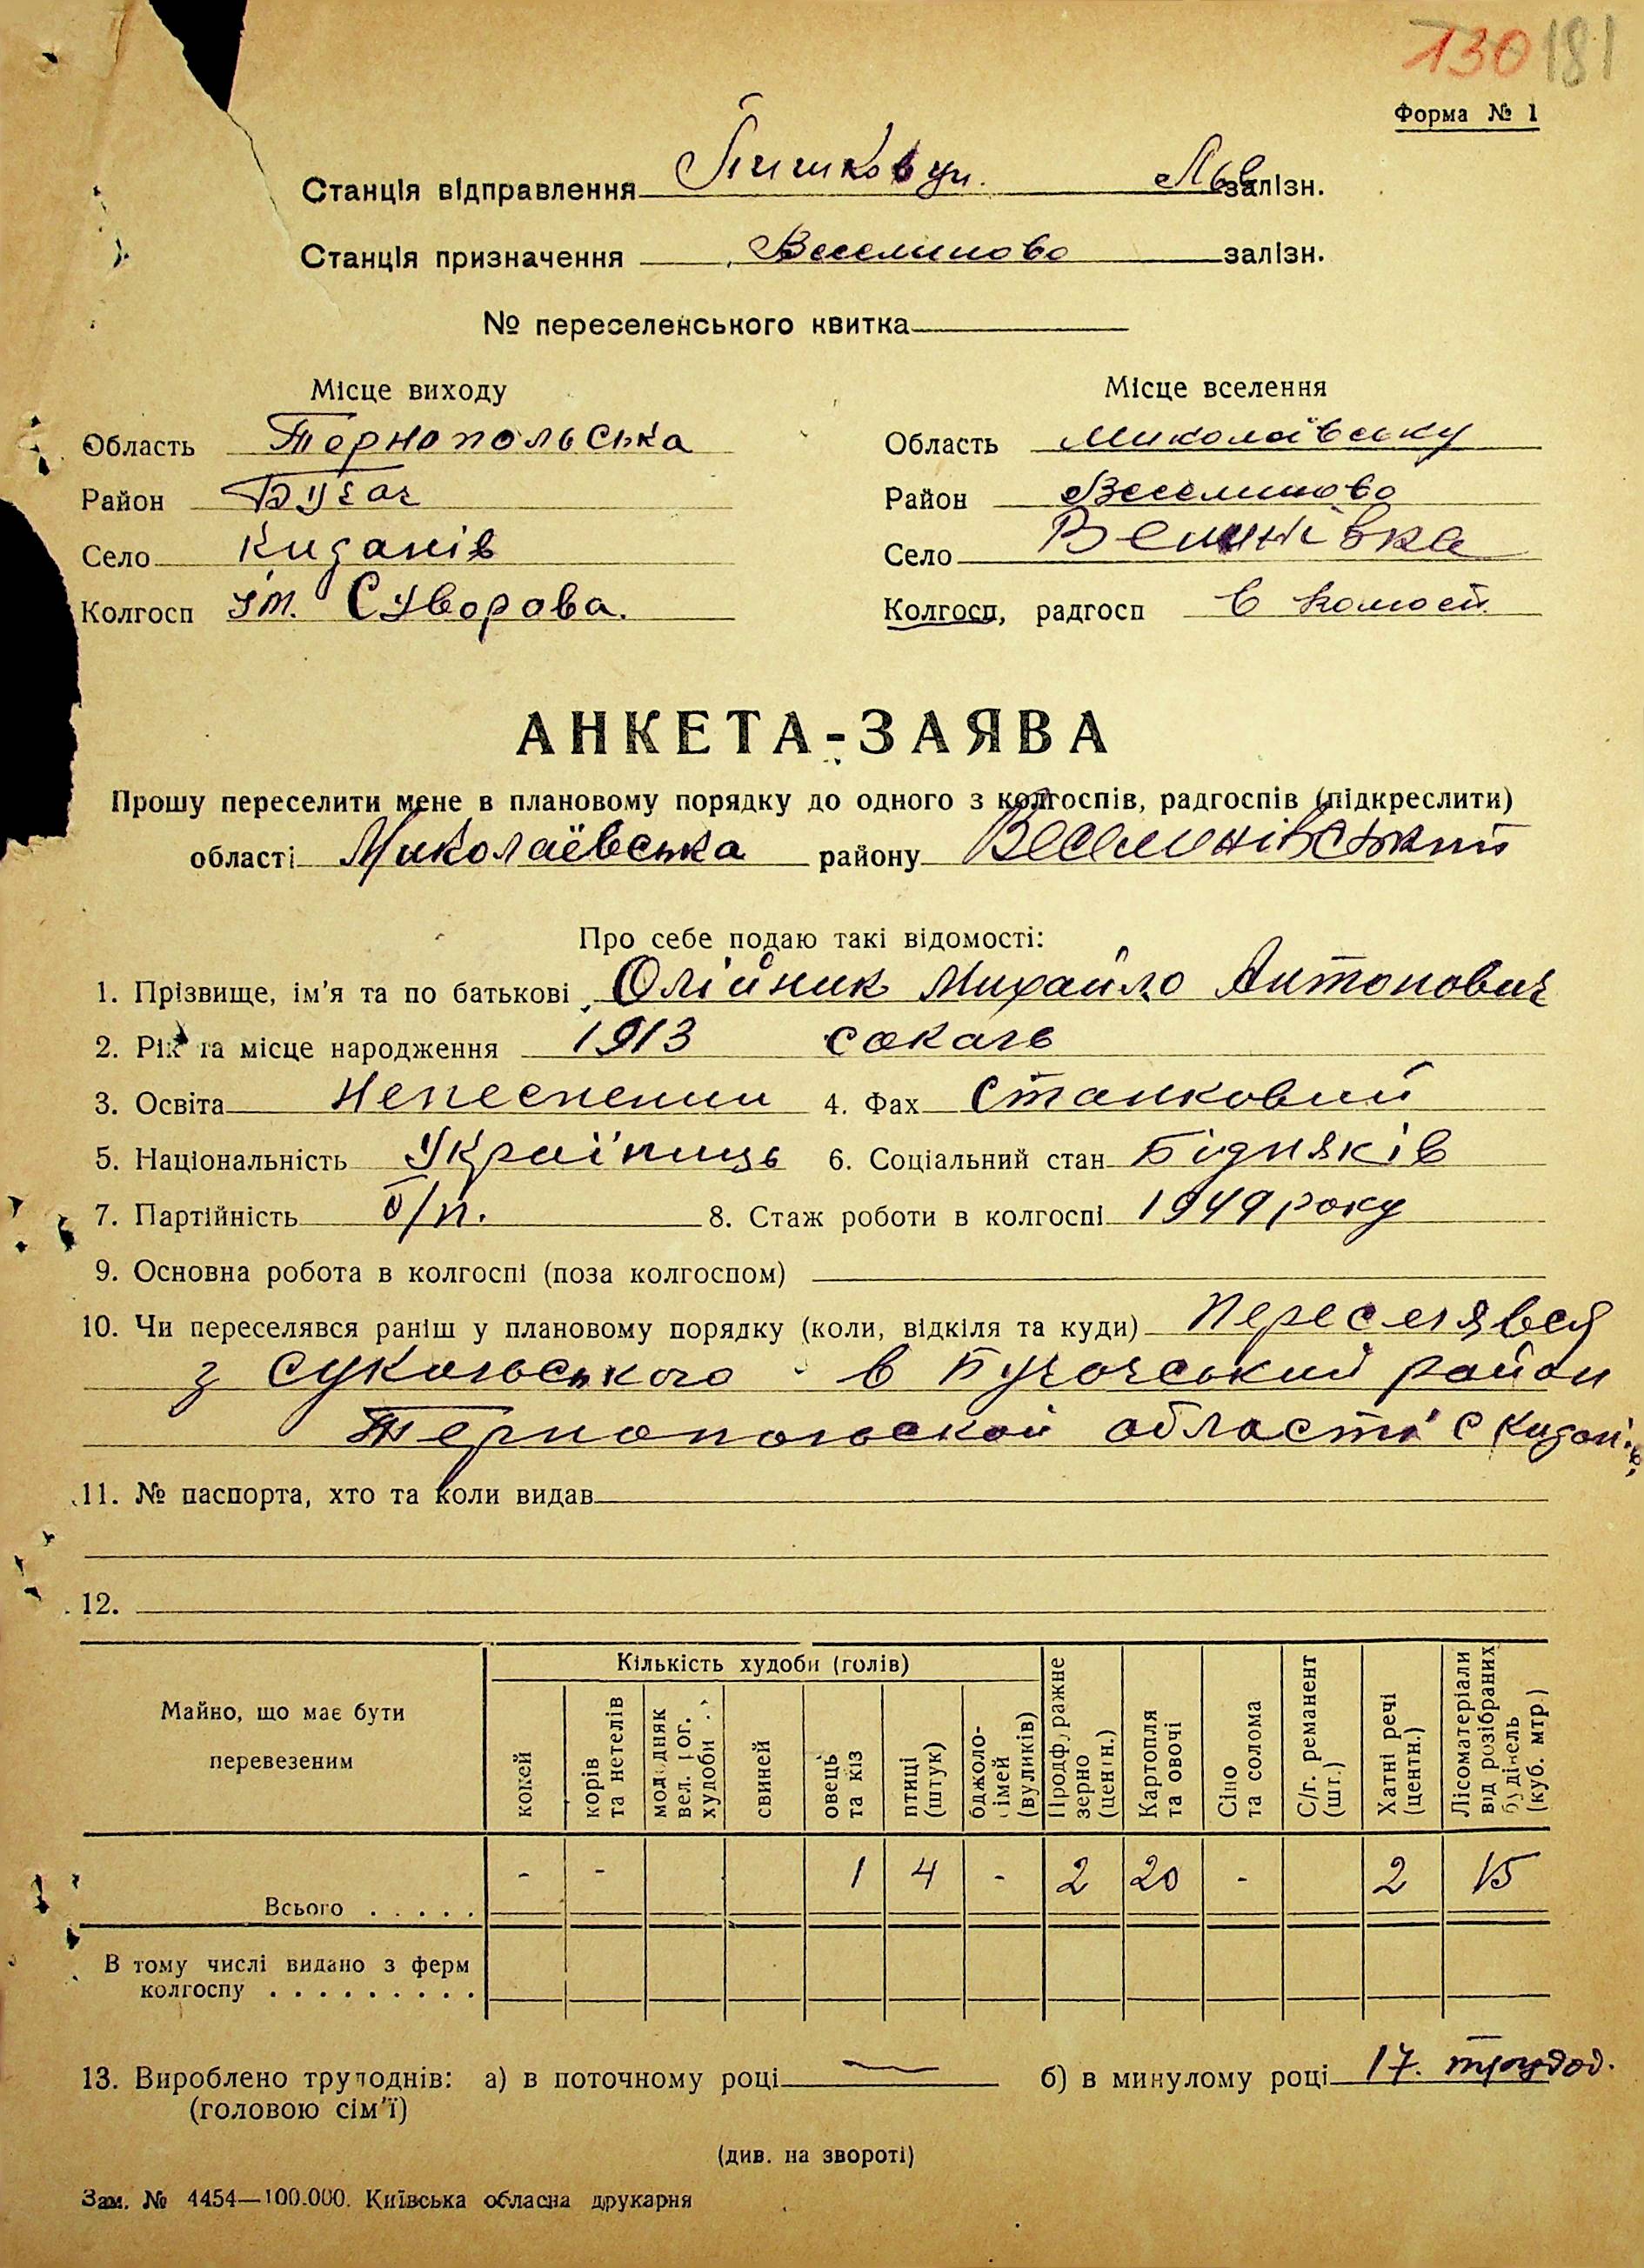 130 181
Форма № 1
Станція відправлення Пишковци. Льв залізн.
Станція призначення Веселиново залізн.
№ переселенського квитка
Місце виходу Місце вселення
Область Тернопольська Область Миколаївську
Район Бучач Район Веселиново
Село Киданів Село
Колгосп ім. Суворова. Колгосп, радгосп в колгосп
АНКЕТА-ЗАЯВА
Прошу переселити мене в плановому порядку до одного з колгоспів, радгоспів (підкреслити)
області Миколаївська району Веселинівський
Про себе подаю такі відомості:
1. Прізвище, ім'я та по батькові Олійник Михайло Антонович
2. Рік та місце народження 1913
3. Освіта 4. Фах
5. Національність Українць 6. Соціальний стан Бідняків
7. Партійність б/п. 8. Стаж роботи в колгоспі 1949 року
9. Основна робота в колгоспі (поза колгоспом)
10. Чи переселявся раніш у плановому порядку (коли, відкіля та куди) Переселявся
з в Бучачський район
Тернопольской області с Киданів
11. № паспорта, хто та коли видав
12.
Майно, що має бути перевезеним
Кількість худоби (голів)
коней
корів та нетелів
молодняк вел. рог. худоби
свиней
овець та кіз
птиці (штук)
бджолосімей (вуликів)
Продфуражне зерно (центн.)
Картопля та овочі
Сіно та солома
С/г. реманент (шт.)
Хатні речі (центн.)
Лісоматеріали від розібраних будівель (куб. мтр.)
Всього . . . . . - - 1 4 - 2 20 - 2 15
В тому числі видано з ферм
колгоспу . . . . . . . . .
13. Вироблено трудоднів: а) в поточному році — б) в минулому році 17. трудод.
(головою сім'ї)
(див. на звороті)
Зам. № 4454—100.000. Київська обласна друкарня